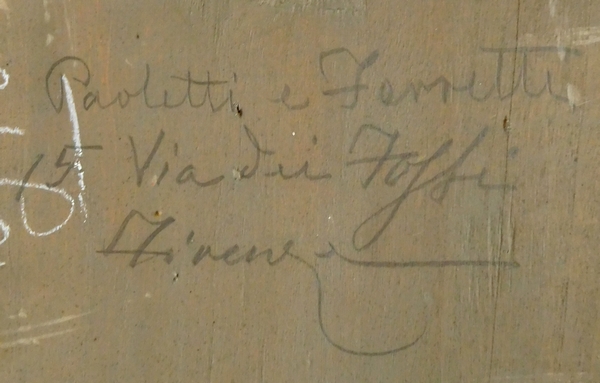 Paoletti e Ferretti
15 Via dei Fossi
Firenze